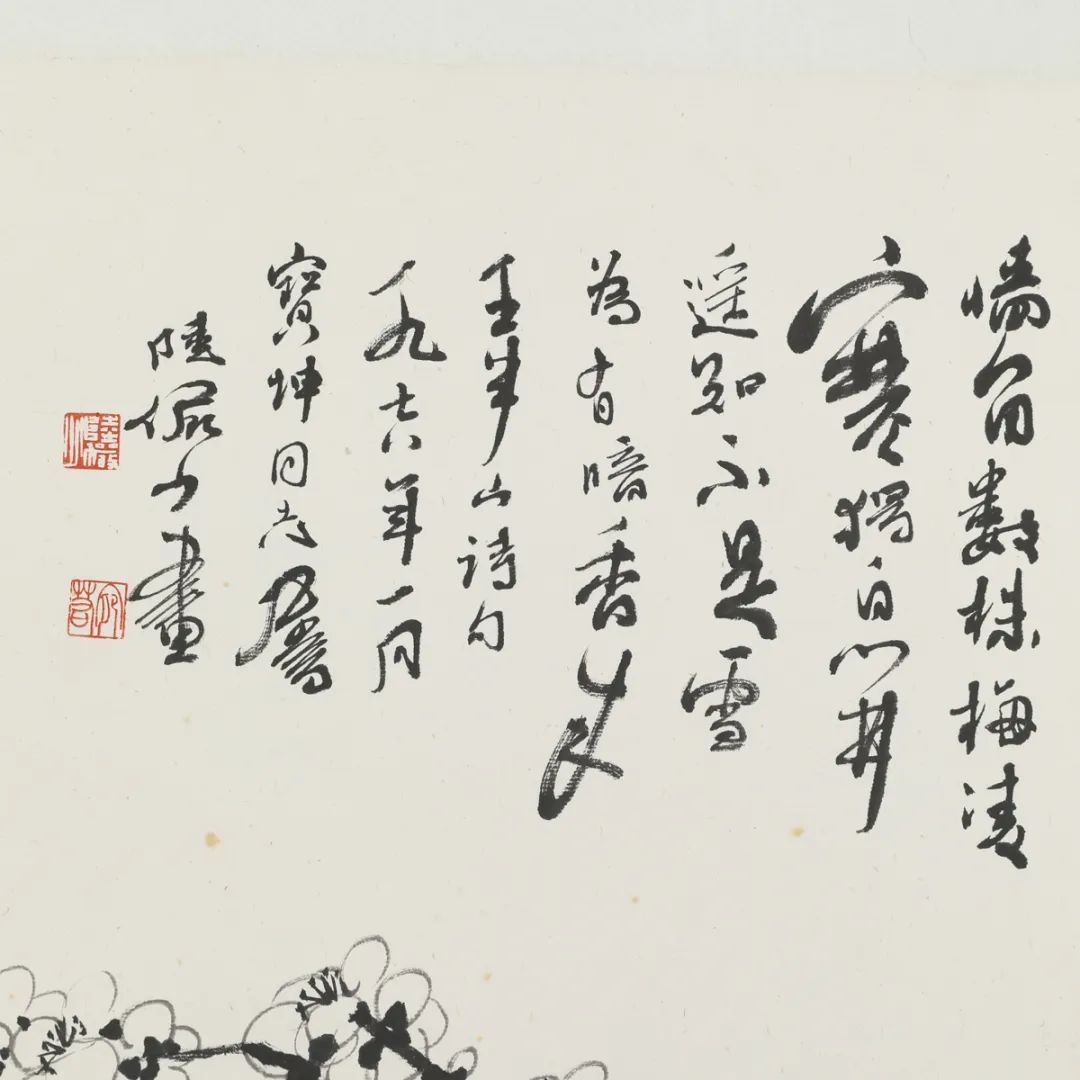 墙角數株梅凌
寒獨自開
遥知不是雪
為有暗香来
王半山诗句
一九七八年一月
寶坤同志屬
陸儼少畫